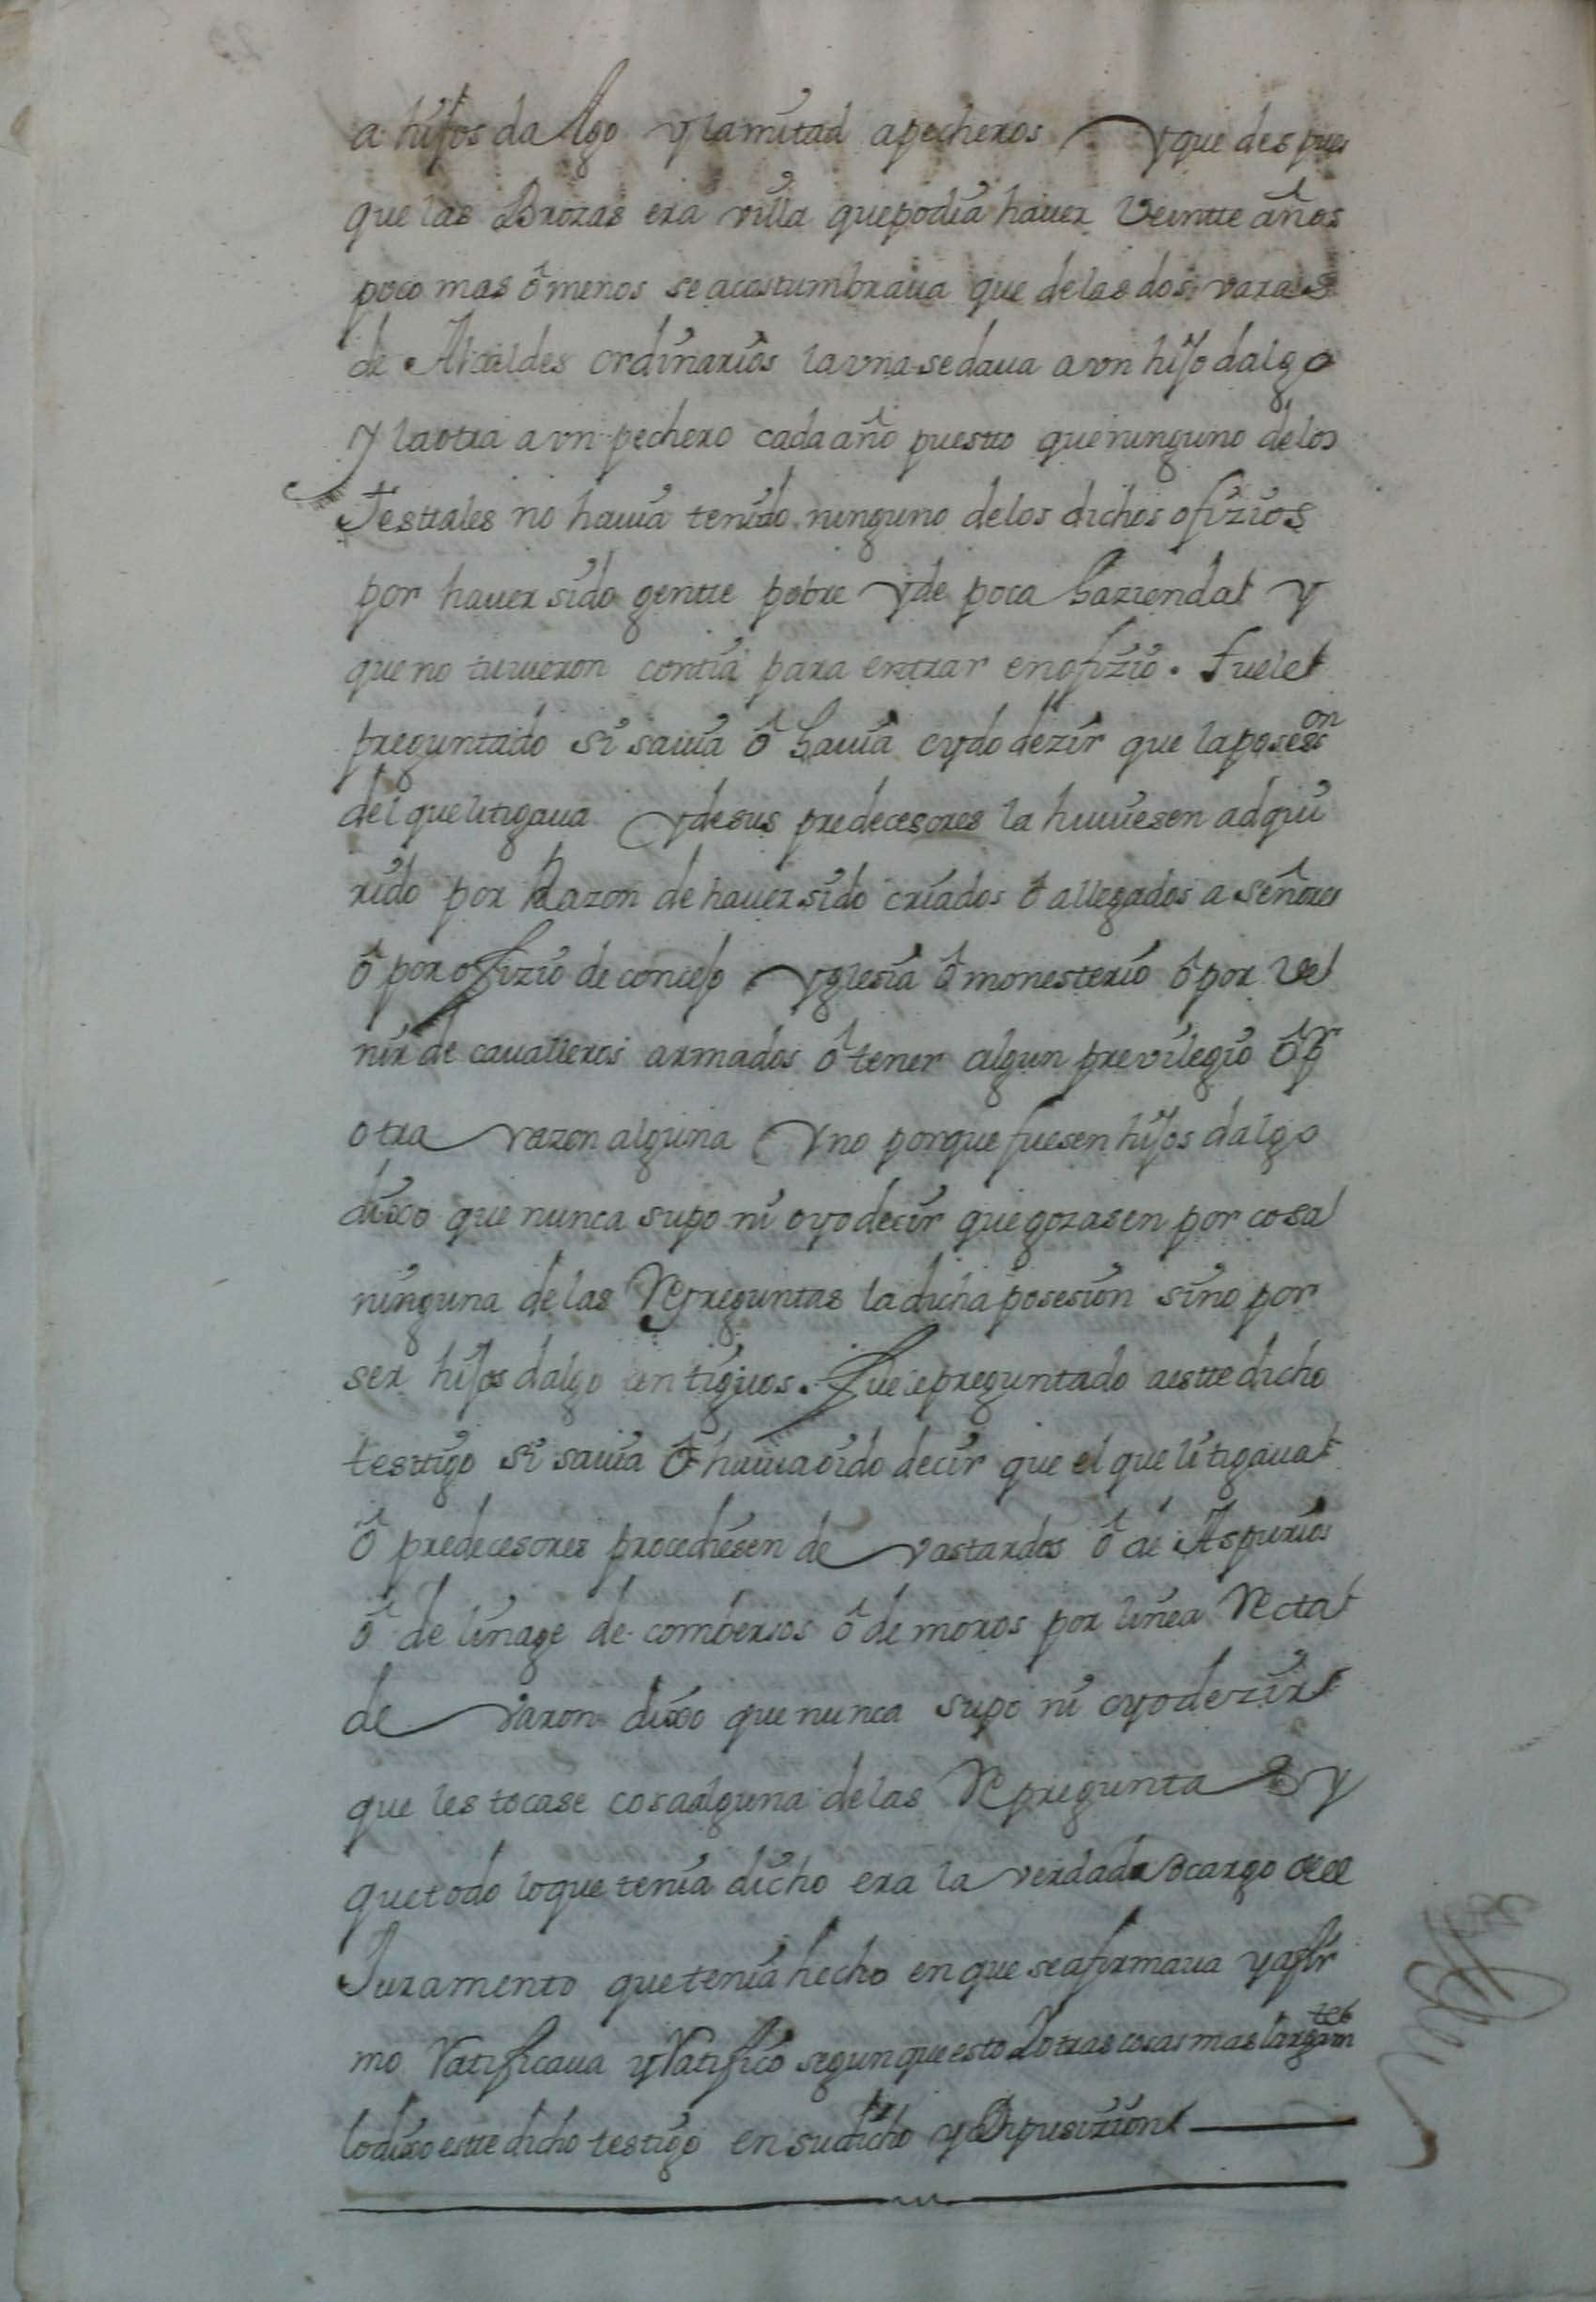 a hijos dalgo y la mitad a pecheros y que despues
que las Brozas era villa que podia hauer Veintte años
poco mas ô menos se acostumbraua que de las dos varas
de Alcaldes ordinarios la vna se daua a vn hijo dalgo
y la otra a vn pechero cada año puestto que ninguno de los
Testtales no hauia tenido ninguno de los dichos ofizios
por hauer sido gentte pobre y de poca hazienda y
que no tuuieron contia para entrar en ofizio. Fuele
preguntado si sauia ô hauia oydo dezir que la poses.on
del que litigaua y de sus predecesores la huuiesen adqui
rido por Razon de hauer sido criados ô allegados a señores
ô por ofizio de concejo yglesia ô monesterio ô por Ve
nir de caualleros armados ô tener algun preuilegio ô pr
otra razon alguna y no porque fuesen hijos dalgo
dixo que nunca supo ni oyo decir que gozasen por cosa
ninguna de las Repreguntas la dicha posesion sino por
ser hijos dalgo antiguos. Fuele preguntado a estte dicho
testtigo si sauia ô hauia oido decir que el que litigaua
ô predecesores procediesen de vastardos ô de Aspurios
ô de linage de combersos ô de moros por linea Recta
de varon dixo que nunca supo ni oyo dezir
que les tocase cosa alguna de las Repreguntas y
que todo lo que tenia dicho era la verdad a cargo del
Juramento que tenia hecho en que se afirmaua y afir
mo Ratificaua y Ratifico segun que esto y otras cosas mas largamte
lo dixo estte dicho testigo en su dicho y Dipusizion